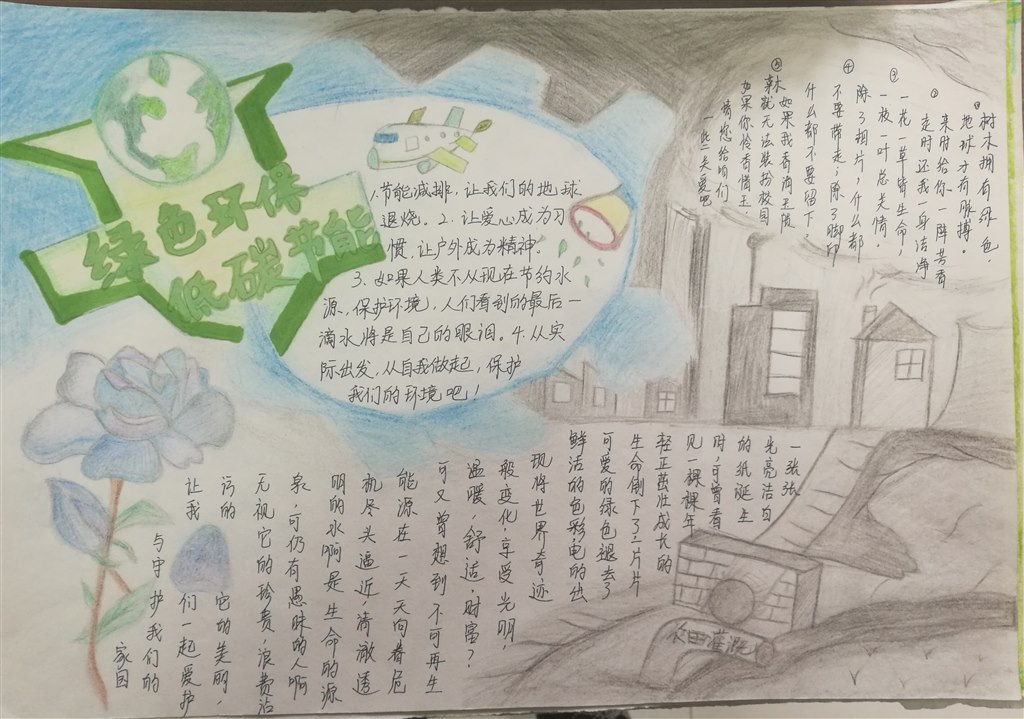 绿色环保
低碳节能
1.节能减排，让我们的地球
退烧。2.让爱心成为习
惯，让户外成为精神。
3.如果人类不从现在节约水
源，保护环境，人们看到的最后一
滴水将是自己的眼泪。4.从实
际出发，从自我做起，保护
我们的环境吧！
①树木拥有绿色，
地球才有脉搏。
②来时给你一阵芳香
走时还我一身洁净
③一花一草皆生命，
一枝一叶总关情。
④除了相片，什么都
不要带走；除了脚印
什么都不要留下
⑤如果我看雨王陵
草木就无法装扮校园
如果你怜香惜玉，
请您给咱们
一些关爱吧
一张张
光亮洁白
的纸诞生
时，可曾看
见一棵棵年
轻正茁壮成长的
生命倒下了一片片
可爱的绿色褪去了
鲜活的色彩电的出
现将世界奇迹
般变化，享受光明，
温暖，舒适，财富？
可又曾想到不可再生
能源在一天天向着危
机尽头逼近，清澈透
明的水啊是生命的源
泉，可仍有愚昧的人啊
无视它的珍贵，浪费沾
污的它切美丽，
让我们一起爱护
与守护我们的
家园
农田灌溉